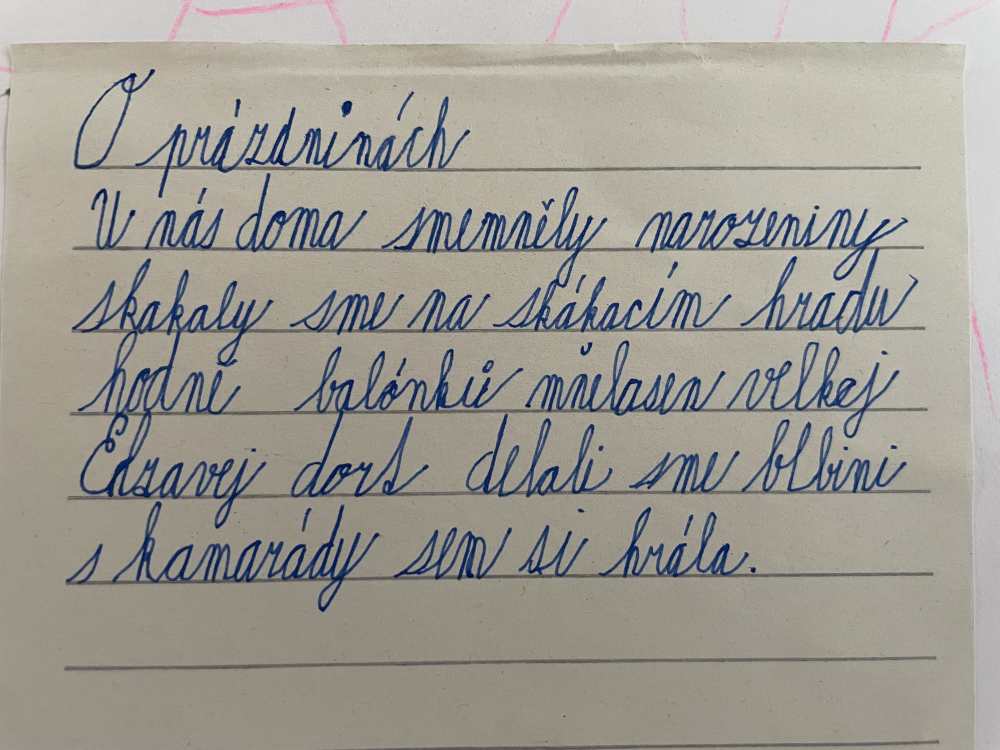 O prázdninách
U nás doma smemněly narozeniny
skakaly sme na skákacím hradu
hodně balónků mnělasen velkej
dort delali sme blbini
s kamarády sem si hrála.